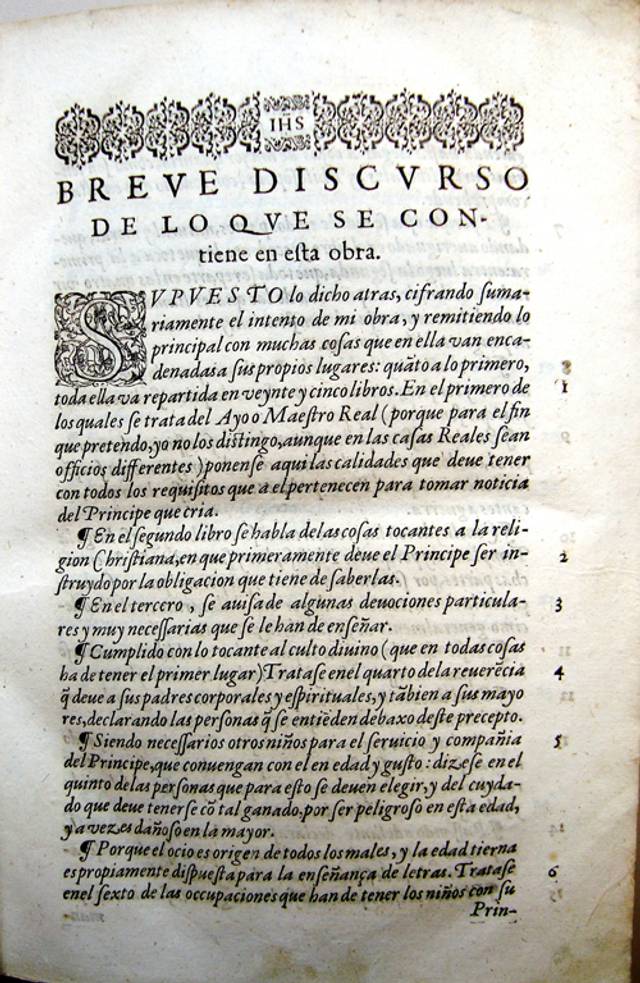 IHS
BREVE DISCVRSO
DE LO QVE SE CON-
tiene en esta obra.
SVPVESTO lo dicho atras, cifrando suma-
riamente el intento de mi obra, y remitiendo lo
principal con muchas cosas que en ella van enca-
denadas a sus propios lugares: quãto a lo primero,
toda ella va repartida en veynte y cinco libros. En el primero de 1
los quales se trata del Ayo o Maestro Real (porque para el fin
que pretendo, yo no los distingo, aunque en las casas Reales sean
officios differentes) ponense aqui las calidades que deue tener
con todos los requisitos que a el pertenecen para tomar noticia
del Principe que cria.
¶ En el segundo libro se habla de las cosas tocantes a la reli-
gion Christiana, en que primeramente deue el Principe ser in- 2
struydo por la obligacion que tiene de saberlas.
¶ En el tercero, se auisa de algunas deuociones particula- 3
res y muy necessarias que se le han de enseñar.
¶ Cumplido con lo tocante al culto diuino (que en todas cosas
ha de tener el primer lugar) Tratase en el quarto de la reuerẽcia 4
q̃ deue a sus padres corporales y espirituales, y tãbien a sus mayo
res, declarando las personas q̃ se entiẽden debaxo deste precepto.
¶ Siendo necessarios otros niños para el seruicio y compañia 5
del Principe, que conuengan con el en edad y gusto: dizese en el
quinto de las personas que para esto se deuen elegir, y del cuyda-
do que deue tenerse cõ tal ganado, por ser peligroso en esta edad,
y a vezes dañoso en la mayor.
¶ Porque el ocio es origen de todos los males, y la edad tierna
es propiamente dispuesta para la enseñança de letras. Tratase 6
en el sexto de las occupaciones que han de tener los niños con su
Prin-